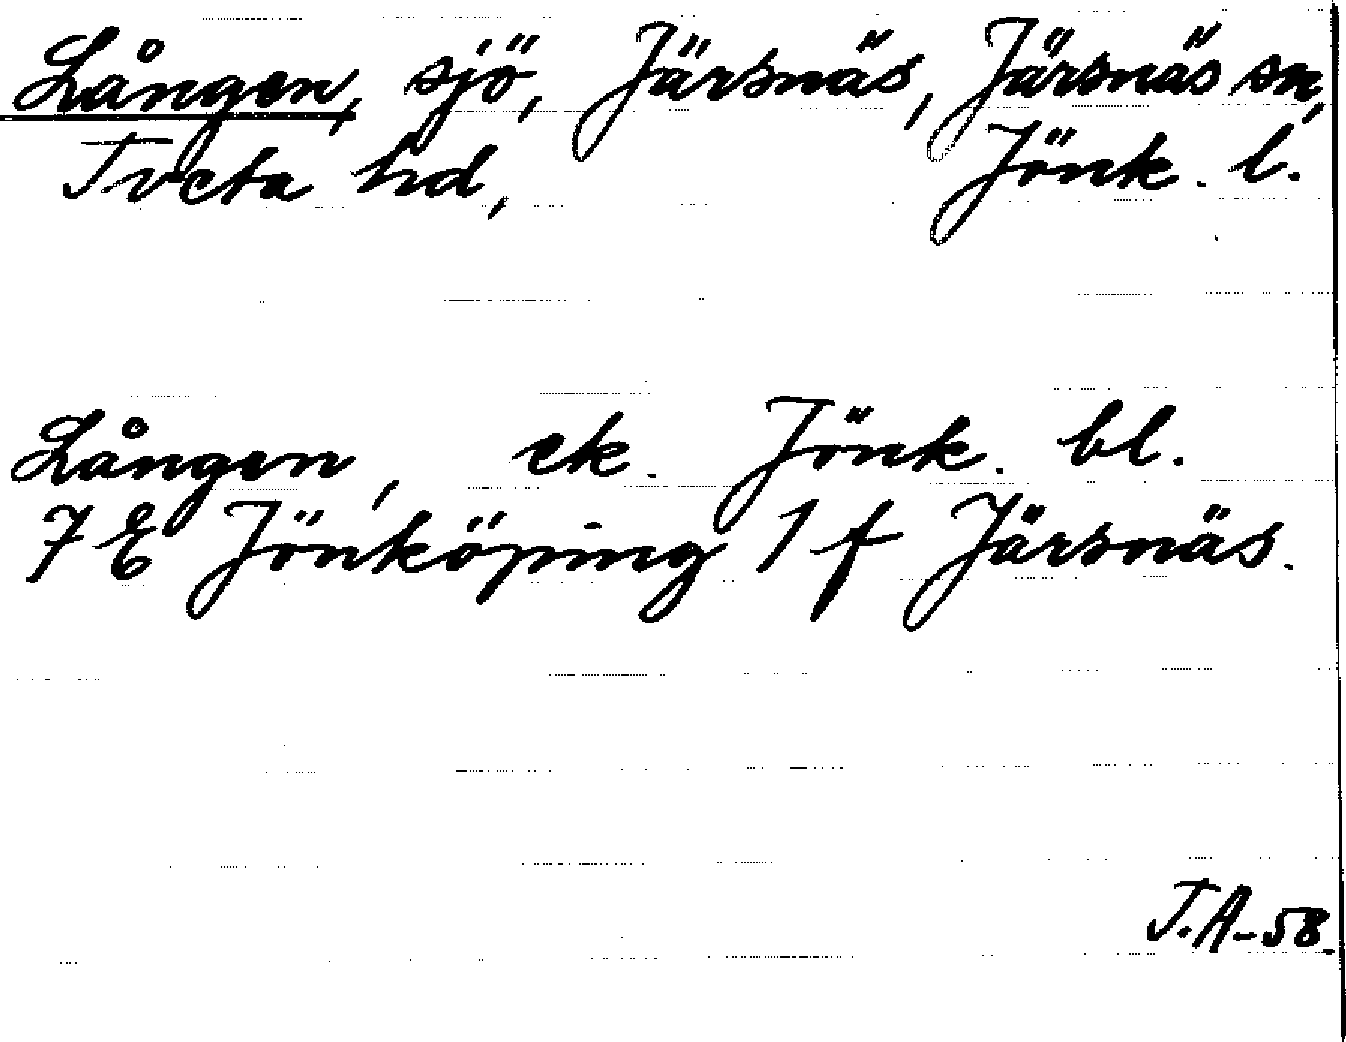 Lången, sjö, Järsnäs, Järsnäs sn,
Tveta hd, Jönk. l.
Lången, ek. Jönk. bl.
7 E Jönköping 1 f Järsnäs.
T.A-58.